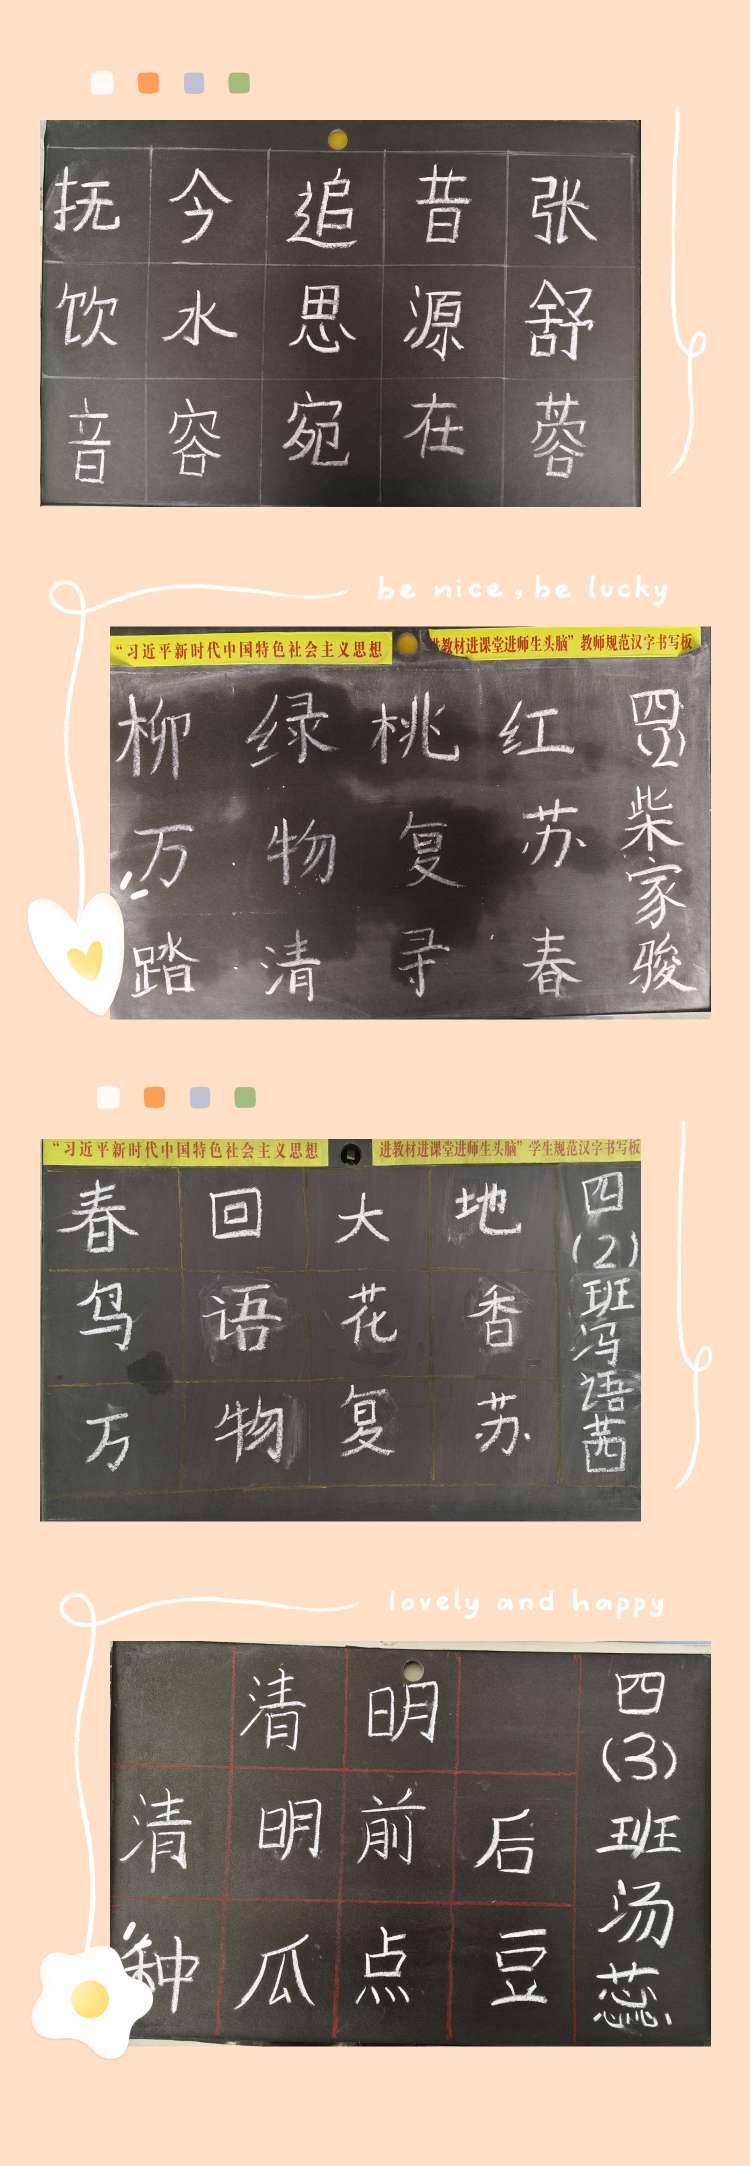 抚今追昔张
饮水思源舒
音容宛在蓉
be nice,be lucky
“习近平新时代中国特色社会主义思想
进教材进课堂进师生头脑”教师规范汉字书写板
柳绿桃红
万物复苏
踏清寻春
四(2)
柴家骏
“习近平新时代中国特色社会主义思想
进教材进课堂进师生头脑”学生规范汉字书写板
春回大地
鸟语花香
万物复苏
四(2)班冯语茜
lovely and happy
清明
清明前后
种瓜点豆
四(3)班汤蕊